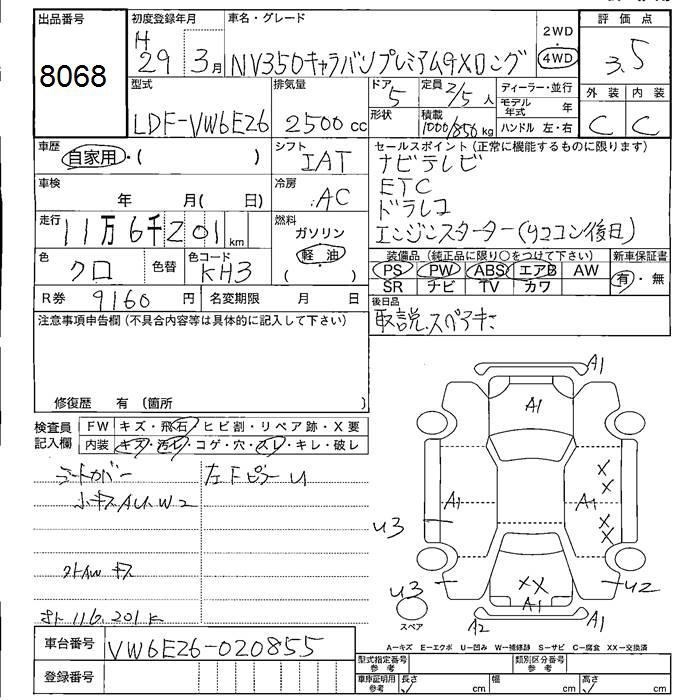 出品番号
8068
初度登録年月
H 29 3月
車名・グレード
NV350キャラバンプレミアムGXロング
2WD
4WD
評価点
3.5
外装 内装
C C
型式
LDF-VW6E26
排気量
2500cc
ドア
5
形状
定員 2/5人
積載
1000/850kg
ディーラー・並行
モデル年式 年
ハンドル 左・右
車歴
自家用・( )
シフト
IAT
車検
年 月( 日)
冷房
AC
走行
11万6千201km
燃料
ガソリン
(軽油)
色
クロ
色替
色コード
KH3
R券 9160円
名変期限 月 日
セールスポイント(正常に機能するものに限ります)
ナビテレビ
ETC
ドラレコ
エンジンスターター(リコン後日)
装備品(純正品に限り○をつけて下さい)
PS PW ABS エアB AW
SR ナビ TV カワ
新車保証書
有・無
後日品
取説.スペアキー
注意事項申告欄(不具合内容等は具体的に記入して下さい)
修復歴 有(箇所 )
検査員記入欄
FW キズ・飛石・ヒビ割・リペア跡・X要
内装 キズ・汚レ・コゲ・穴・スレ・キレ・破レ
シートカバー
左Fピラー U
小キズ A U. W2
AW キズ
116,201K
車台番号
VW6E26-020855
登録番号
A1
A1
A1
X X
A1
X X
U3
U3
XX
A1
U2
A2
A1
スペア
A-キズ E-エクボ U-凹み W-補修跡 S-サビ C-腐食 XX-交換済
型式指定番号 参考
類別区分番号 参考
車庫証明用 参考
長さ cm
幅 cm
高さ cm